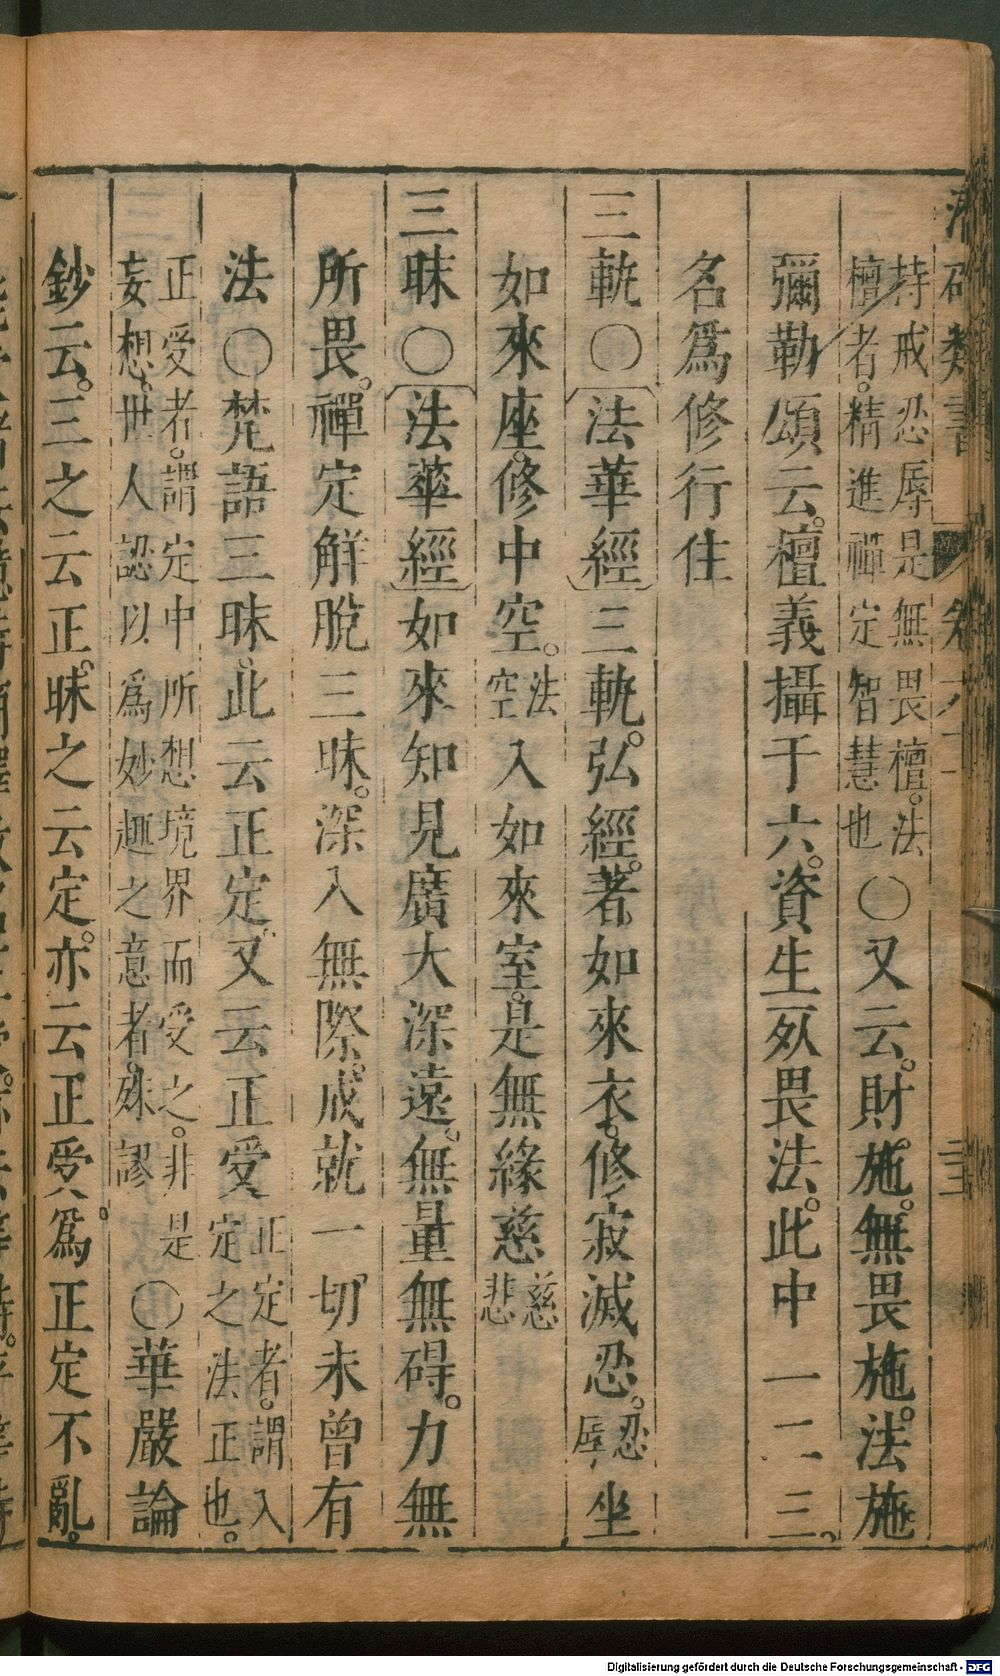 持戒忍辱是無畏檀。法
檀者。精進禪定智慧也
〇又云。財施。無畏施。法施
彌勒頌云。檀義攝于六。資生無畏法。此中一二三。
名爲修行住
三軌〇法華經三軌。弘經。著如來衣。修寂滅忍。忍
辱坐
如來座。修中空。法
空入如來室。是無緣慈慈
悲
三昧〇法華經如來知見廣大深遠。無量無碍。力無
所畏。禪定解脫三昧。深入無際。成就一切未曾有
法〇梵語三昧。此云正定。又云正受正定者。謂入
定之法正也。
正受者。謂定中所想境界而受之。非是
妄想。世人認以爲妙趣之意者。殊謬
〇華嚴論
鈔云。三之云正。昧之云定。亦云正受。爲正定不亂。
Digitalisierung gefördert durch die Deutsche Forschungsgemeinschaft - DFG